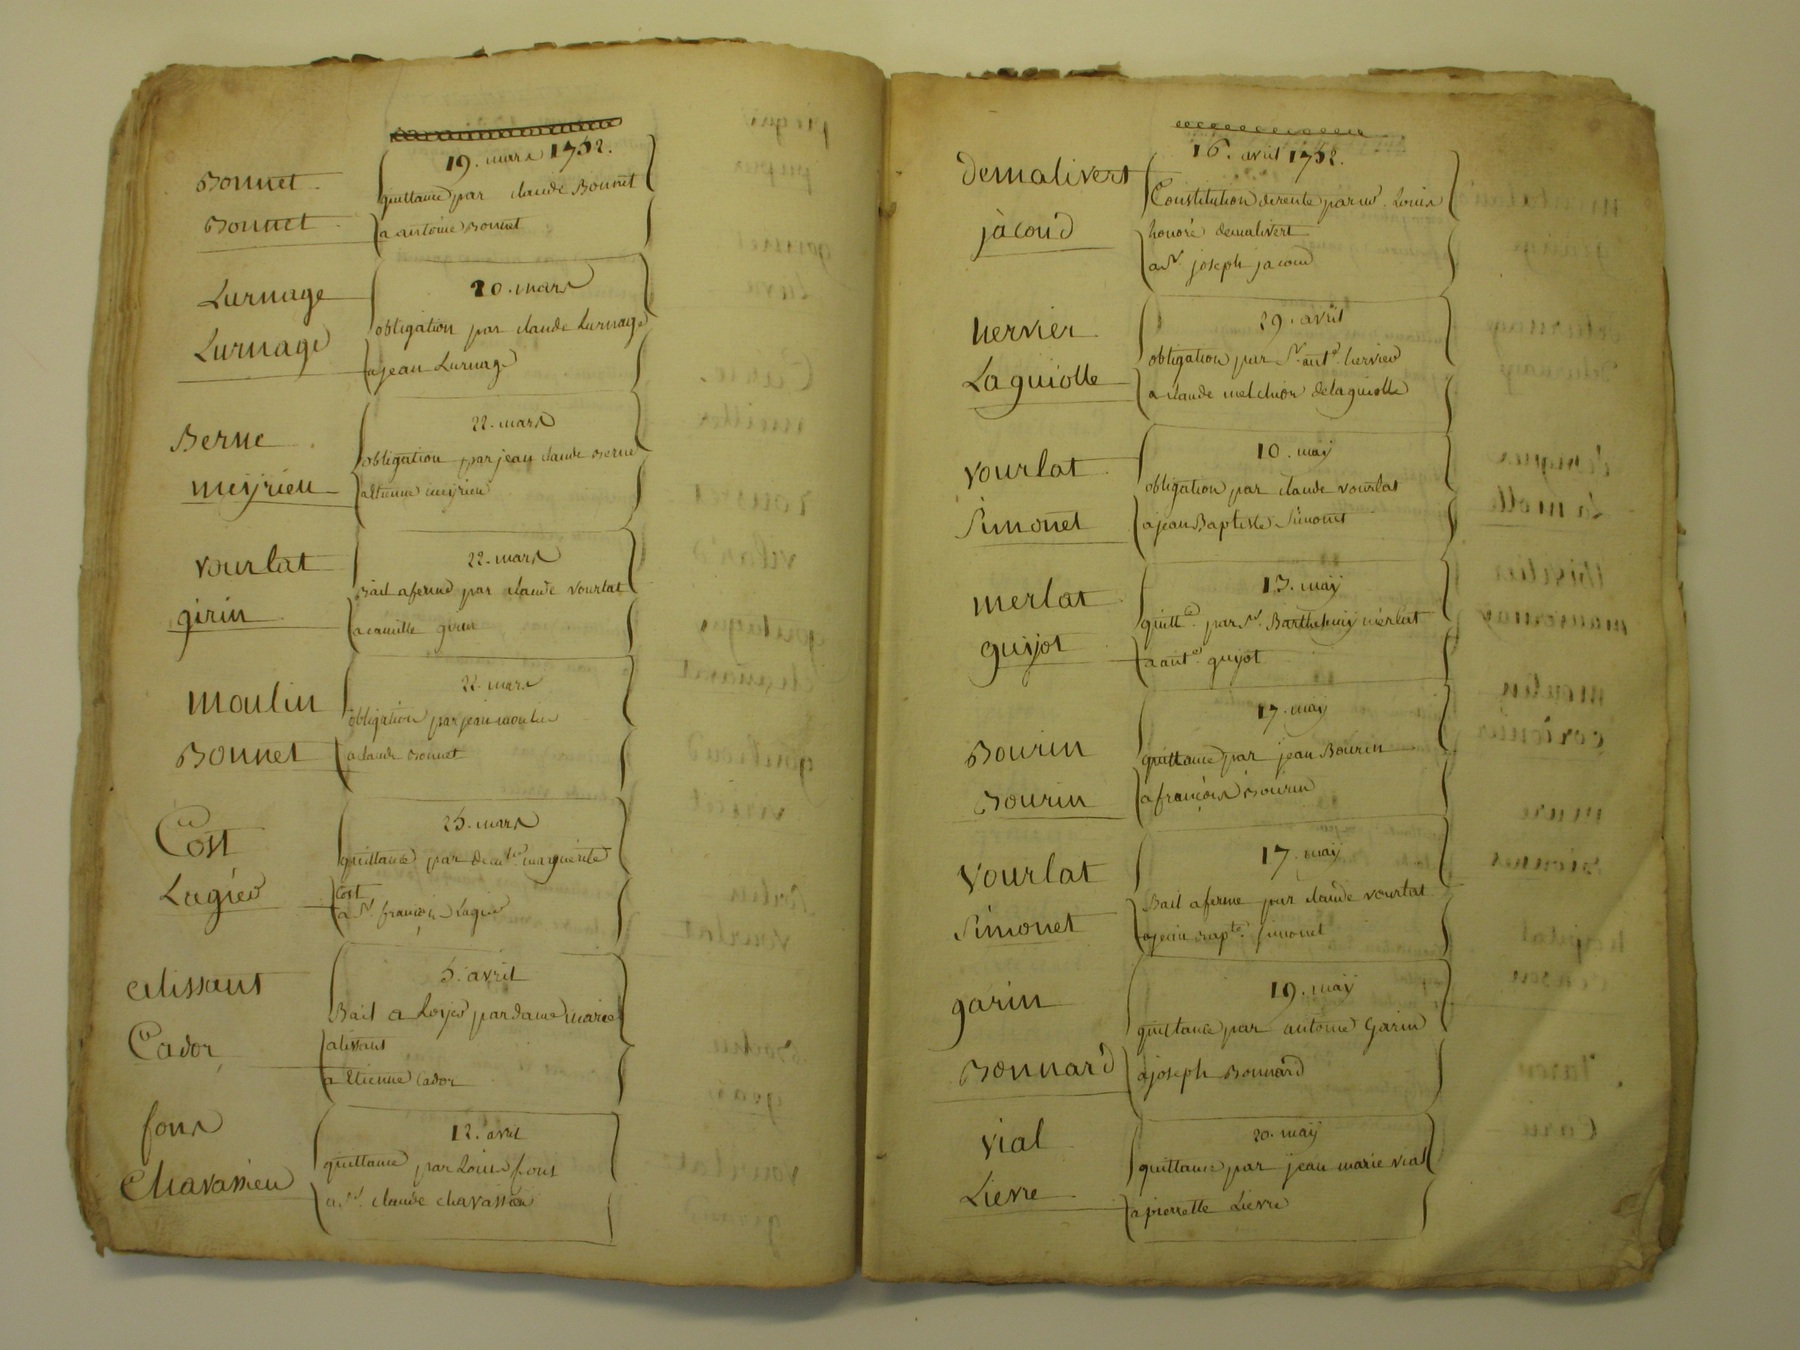 19. mars 1752.
Bonnet
quittance par claude Bonnet
Bonnet
a antoine Bonnet
20. mars
Lurnage
obligation par claude Lurnage
Lurnage
a jean Lurnage
22. mars
Berne
obligation par jean claude Berne
meyrieu
a Etienne meyrieu
22. mars
vourlat
Bail a ferme par claude vourlat
girin
a camille girin
22. mars
moulin
obligation par jean moulin
Bonnet
a claude Bonnet
25. mars
Cost
quittance par dem.lle marguerite
Cost
Lagier
a Sr. françois Lagier
5. avril
alissant
Bail a Loyer par dame marie
alissant
Cador
a Etienne Cador
12. avril
fons
quittance par Louis fons
Chavassieu
a Sr. claude chavassieu
16. avril 1752.
demalivert
Constitution de rente par Louis
honoré demalivert
jacoud
a Sr. joseph jacoud
29. avril
hervier
obligation par Sr. ant.e hervier
Laguiolle
a claude melchior delaguiolle
10. may
vourlat
obligation par claude vourlat
Simonet
a jean Baptiste Simonet
13. may
merlat
quitt.ce par Sr. Barthelmy merlat
guyot
a ant.e guyot
17. may
Bourin
quittance par jean Bourin
Bourin
a françois Bourin
17. may
vourlat
Bail a ferme par claude vourlat
Simonet
a jean Bapte. simonet
19. may
garin
quittance par antoine Garin
Bonnard
a joseph Bonnard
20. may
vial
quittance par jean marie vial
Lievre
a pierrette Lievre